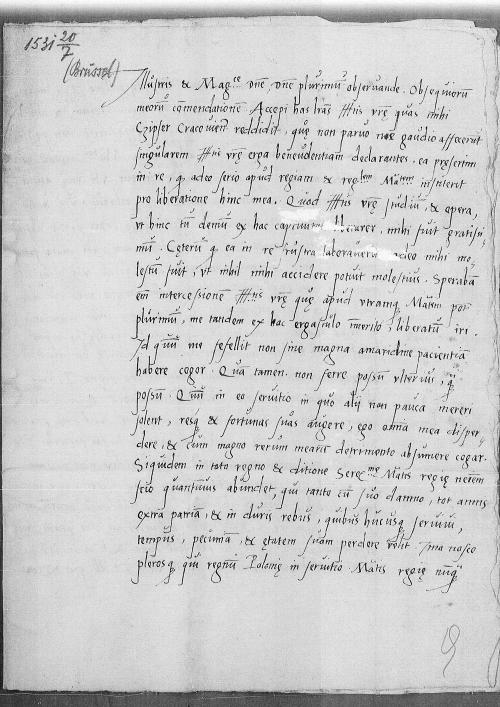 1531 20/7
(Brüssel)
Illustris & Mag.ce dne dne plurimu observande. Obsequiorū
meorū cōmendationē. Accepi has lrās Mtis vrę quas mihi
Czipser Cracouien reddidit, quę non paruo me gaudio affecerūt
singularem Mtis vrę erga beneuolentiam declarantes. ea pręsertim
in re, q adeo serio apud regiam & reg.lem Mātem institerit
pro liberatione hinc mea. Quod Mtis vrę studiū, & opera,
vt hinc tū demū ex hac captiuitate liberarer, mihi fuit gratissi-
mū. Cęterū q ea in re frustra laborauerit adeo mihi mo-
lestū fuit, vt nihil mihi accidere potuit molestius. Sperabā
em intercessionē Mtis vrę quę apud vtramq Mātem pot
plurimū, me tandem ex hac ergastulo īmerito, liberatū iri.
Id quū me fefellit non sine magna amaritudine pacientiā
habere cogor. Quā tamen non ferre possū vlterius, q
possū. Quū in eo seruitio in quo alij non pauca mereri
solent, resq & fortunas suas augere, ego omnia mea disper-
dere, & cum magno rerum mearū detrimento absumere cogar.
Siquidem in toto regno & ditione Sere.me Mātis regię neīem
scio quantumuis abundet, qui tanto cū suo damno, tot annis
extra patriā, & in duris rebus, quibus hucusq seruiui,
tempus, pecuniā, & ętatem suam perdere velit. Imo nosco
plerosq qui regnū Polonię in seruitio Mātis regię nūq